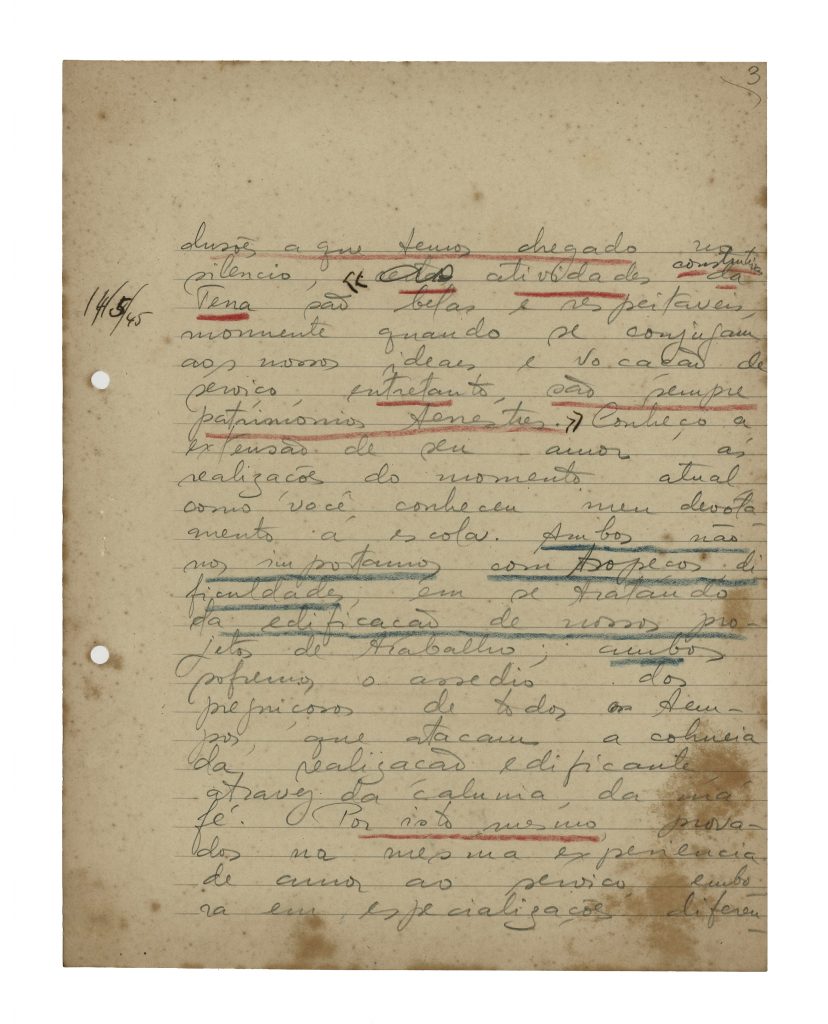 3
clusões a que temos chegado no
silencio, estas atividades construtivas da
14/5/45
Terra são belas e respeitaveis,
mormente quando se conjugam
aos nossos ideaes e vocacão de
servico, entretanto, são sempre
patrimonios terrestres. » Conheço a
extensão de seu amor ás
realizações do momento atual
como você conheceu meu devota
mento á escola. Ambos não
nos importamos com tropeços di
ficuldades, em se tratando
da edificacão de nossos pro-
jetos de trabalho; ambos
sofremos o assedio dos
preguicosos de todos os tem-
pos, que atacam a colmeia
da realizacão edificante,
atravez da calunia, da má
fé. Por isto mesmo, prova-
dos na mesma experiencia
de amor ao servico, embo
ra em especializações diferen